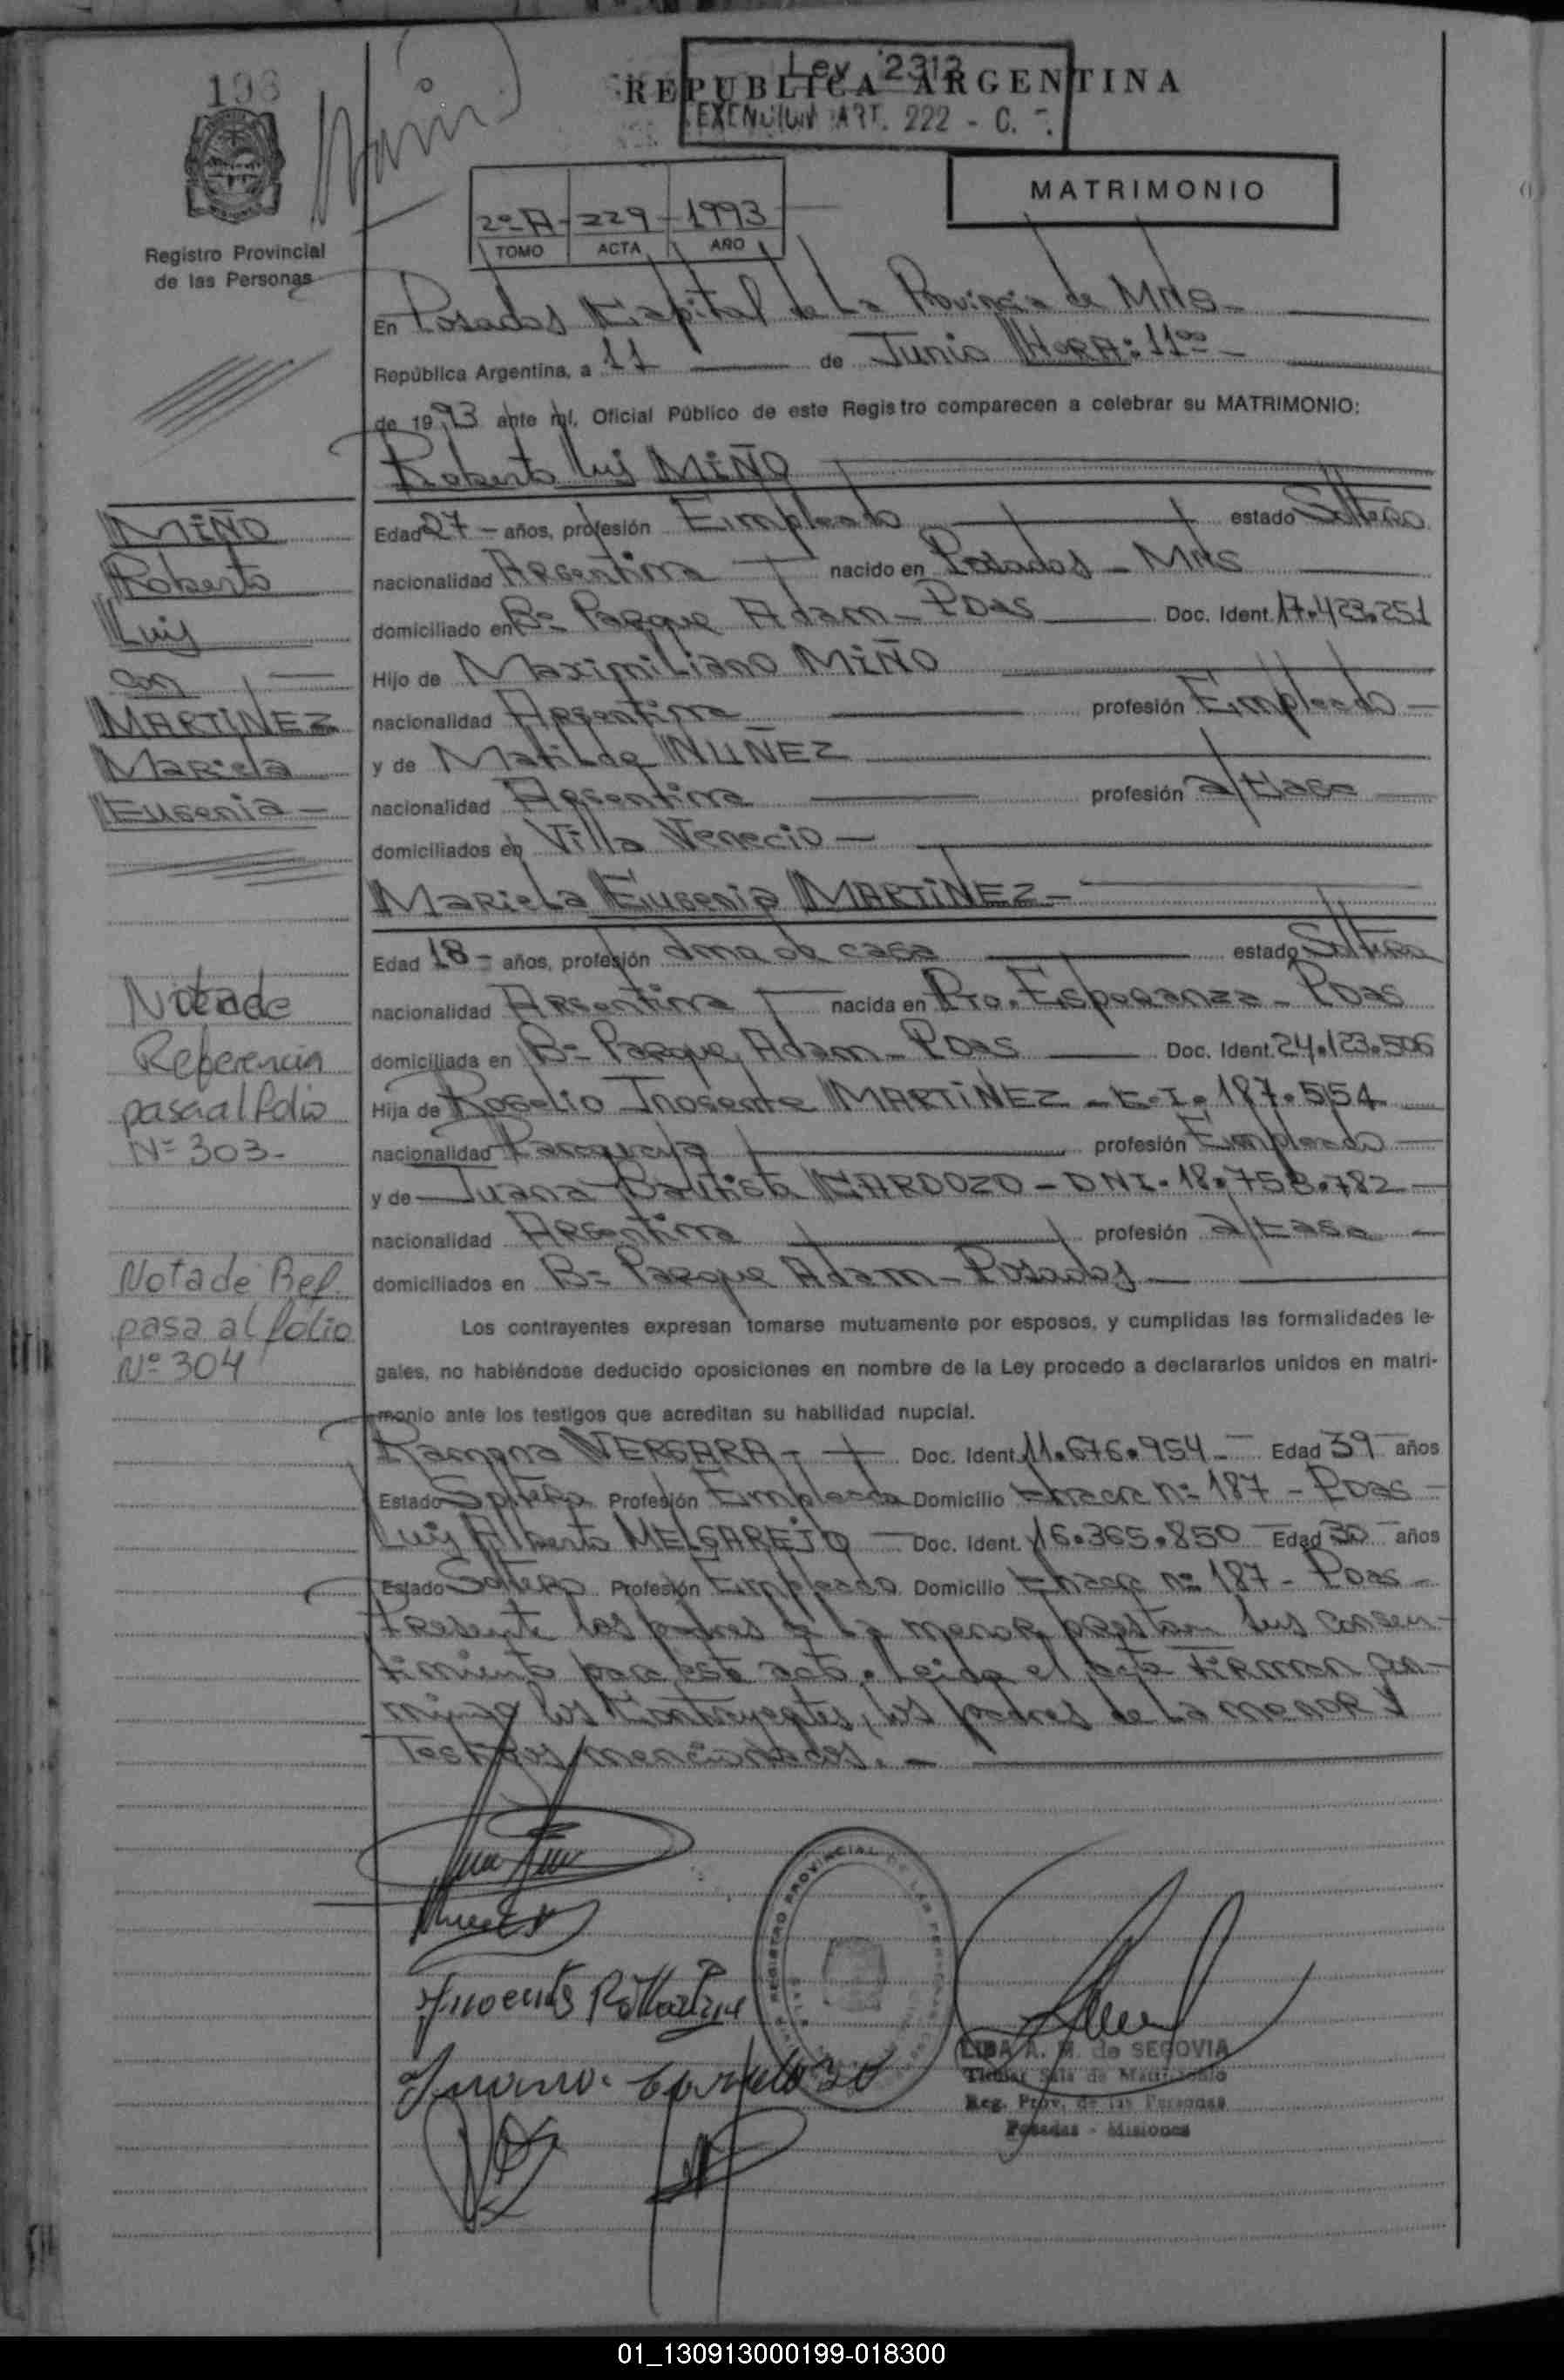 Ley 2313
REPUBLICA ARGENTINA
ART. 222 - C.
MATRIMONIO
2º A - 229 - 1993
TOMO ACTA AÑO
Registro Provincial
de las Personas
En Posadas Capital de La Provincia de Mnes
República Argentina, a 11 de Junio Hora: 11⁰⁰
de 1993 ante mí, Oficial Público de este Registro comparecen a celebrar su MATRIMONIO:
Roberto Luis MIÑO
MIÑO
Roberto
Luis
con
MARTINEZ
Mariela
Eusenia -
Edad 27 - años, profesión Empleado estado Soltero
nacionalidad Argentina nacido en Posadas - Mnes
domiciliado en Bº Parque Adam - Pdas Doc. Ident. 17.423.251
Hijo de Maximiliano MIÑO
nacionalidad Argentina profesión Empleado
y de Matilde NUÑEZ
nacionalidad Argentina profesión a/casa
domiciliados en Villa Venecio
Mariela Eusenia MARTINEZ -
Edad 18 - años, profesión ama de casa estado Soltera
nacionalidad Argentina nacida en Pto. Esperanza - Pdas
domiciliada en Bº Parque Adam - Pdas Doc. Ident. 24.123.506
Hija de Rogelio Inosente MARTINEZ - C.I. 187.554
nacionalidad Paraguaya profesión Empleado
y de Juana Bautista CARDOZO - DNI. 18.753.782
nacionalidad Argentina profesión a/casa
domiciliados en Bº Parque Adam - Posadas
Nota de
Referencia
pasa al folio
Nº 303-
Nota de Ref.
pasa al folio
Nº 304
Los contrayentes expresan tomarse mutuamente por esposos, y cumplidas las formalidades le-
gales, no habiéndose deducido oposiciones en nombre de la Ley procedo a declararlos unidos en matri-
monio ante los testigos que acreditan su habilidad nupcial.
Ramona VERGARA - Doc. Ident. 11.676.954 - Edad 39 años
Estado Soltera Profesión Empleada Domicilio Chacra nº 187 - Pdas -
Luis Alberto MELGAREJO - Doc. Ident. 16.365.850 Edad 30 años
Estado Soltero Profesión Empleado Domicilio Chacra nº 187 - Pdas -
Presente los padres de la menor prestan sus consen-
timiento para este acto. Leida el acta Firman con-
migo los Contrayentes, los padres de La menor y
Testigos mencionados. -
REGISTRO PROVINCIAL DE LAS PERSONAS
LIBA A. M. de SEGOVIA
Titular Sala de Matrimonio
Reg. Prov. de las Personas
Posadas - Misiones
01_130913000199-018300